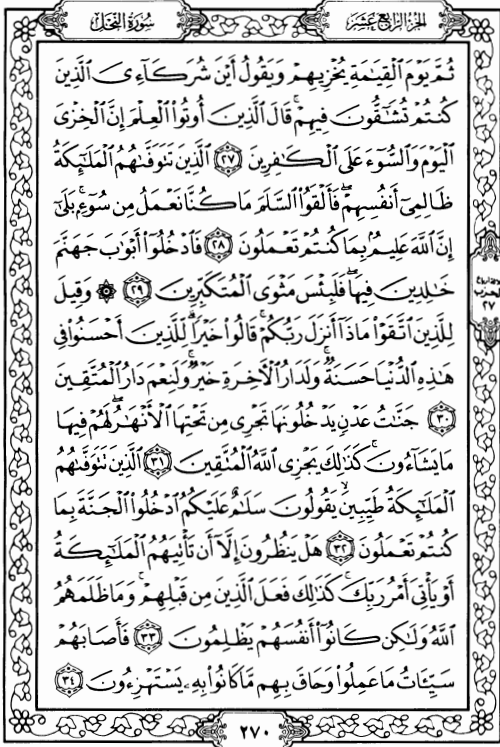 سُورَةُ النَّحْلِ
الجُزْءُ الرَّابِعُ عَشَرَ
ثُمَّ يَوْمَ ٱلْقِيَٰمَةِ يُخْزِيهِمْ وَيَقُولُ أَيْنَ شُرَكَآءِىَ ٱلَّذِينَ
كُنتُمْ تُشَٰٓقُّونَ فِيهِمْ ۚ قَالَ ٱلَّذِينَ أُوتُوا۟ ٱلْعِلْمَ إِنَّ ٱلْخِزْىَ
ٱلْيَوْمَ وَٱلسُّوٓءَ عَلَى ٱلْكَٰفِرِينَ ﴿٢٧﴾ ٱلَّذِينَ تَتَوَفَّىٰهُمُ ٱلْمَلَٰٓئِكَةُ
ظَالِمِىٓ أَنفُسِهِمْ ۖ فَأَلْقَوُا۟ ٱلسَّلَمَ مَا كُنَّا نَعْمَلُ مِن سُوٓءٍۭ ۚ بَلَىٰٓ
إِنَّ ٱللَّهَ عَلِيمٌۢ بِمَا كُنتُمْ تَعْمَلُونَ ﴿٢٨﴾ فَٱدْخُلُوٓا۟ أَبْوَٰبَ جَهَنَّمَ
خَٰلِدِينَ فِيهَا ۖ فَلَبِئْسَ مَثْوَى ٱلْمُتَكَبِّرِينَ ﴿٢٩﴾ ۞ وَقِيلَ
لِلَّذِينَ ٱتَّقَوْا۟ مَاذَآ أَنزَلَ رَبُّكُمْ ۚ قَالُوا۟ خَيْرًا ۗ لِّلَّذِينَ أَحْسَنُوا۟ فِى
هَٰذِهِ ٱلدُّنْيَا حَسَنَةٌ ۚ وَلَدَارُ ٱلْءَاخِرَةِ خَيْرٌ ۚ وَلَنِعْمَ دَارُ ٱلْمُتَّقِينَ
﴿٣٠﴾ جَنَّٰتُ عَدْنٍ يَدْخُلُونَهَا تَجْرِى مِن تَحْتِهَا ٱلْأَنْهَٰرُ ۖ لَهُمْ فِيهَا
مَا يَشَآءُونَ ۚ كَذَٰلِكَ يَجْزِى ٱللَّهُ ٱلْمُتَّقِينَ ﴿٣١﴾ ٱلَّذِينَ تَتَوَفَّىٰهُمُ
ٱلْمَلَٰٓئِكَةُ طَيِّبِينَ ۙ يَقُولُونَ سَلَٰمٌ عَلَيْكُمُ ٱدْخُلُوا۟ ٱلْجَنَّةَ بِمَا
كُنتُمْ تَعْمَلُونَ ﴿٣٢﴾ هَلْ يَنظُرُونَ إِلَّآ أَن تَأْتِيَهُمُ ٱلْمَلَٰٓئِكَةُ
أَوْ يَأْتِىَ أَمْرُ رَبِّكَ ۚ كَذَٰلِكَ فَعَلَ ٱلَّذِينَ مِن قَبْلِهِمْ ۚ وَمَا ظَلَمَهُمُ
ٱللَّهُ وَلَٰكِن كَانُوٓا۟ أَنفُسَهُمْ يَظْلِمُونَ ﴿٣٣﴾ فَأَصَابَهُمْ
سَيِّـَٔاتُ مَا عَمِلُوا۟ وَحَاقَ بِهِم مَّا كَانُوا۟ بِهِۦ يَسْتَهْزِءُونَ ﴿٣٤﴾
الحزب
٢٧
٢٧٠